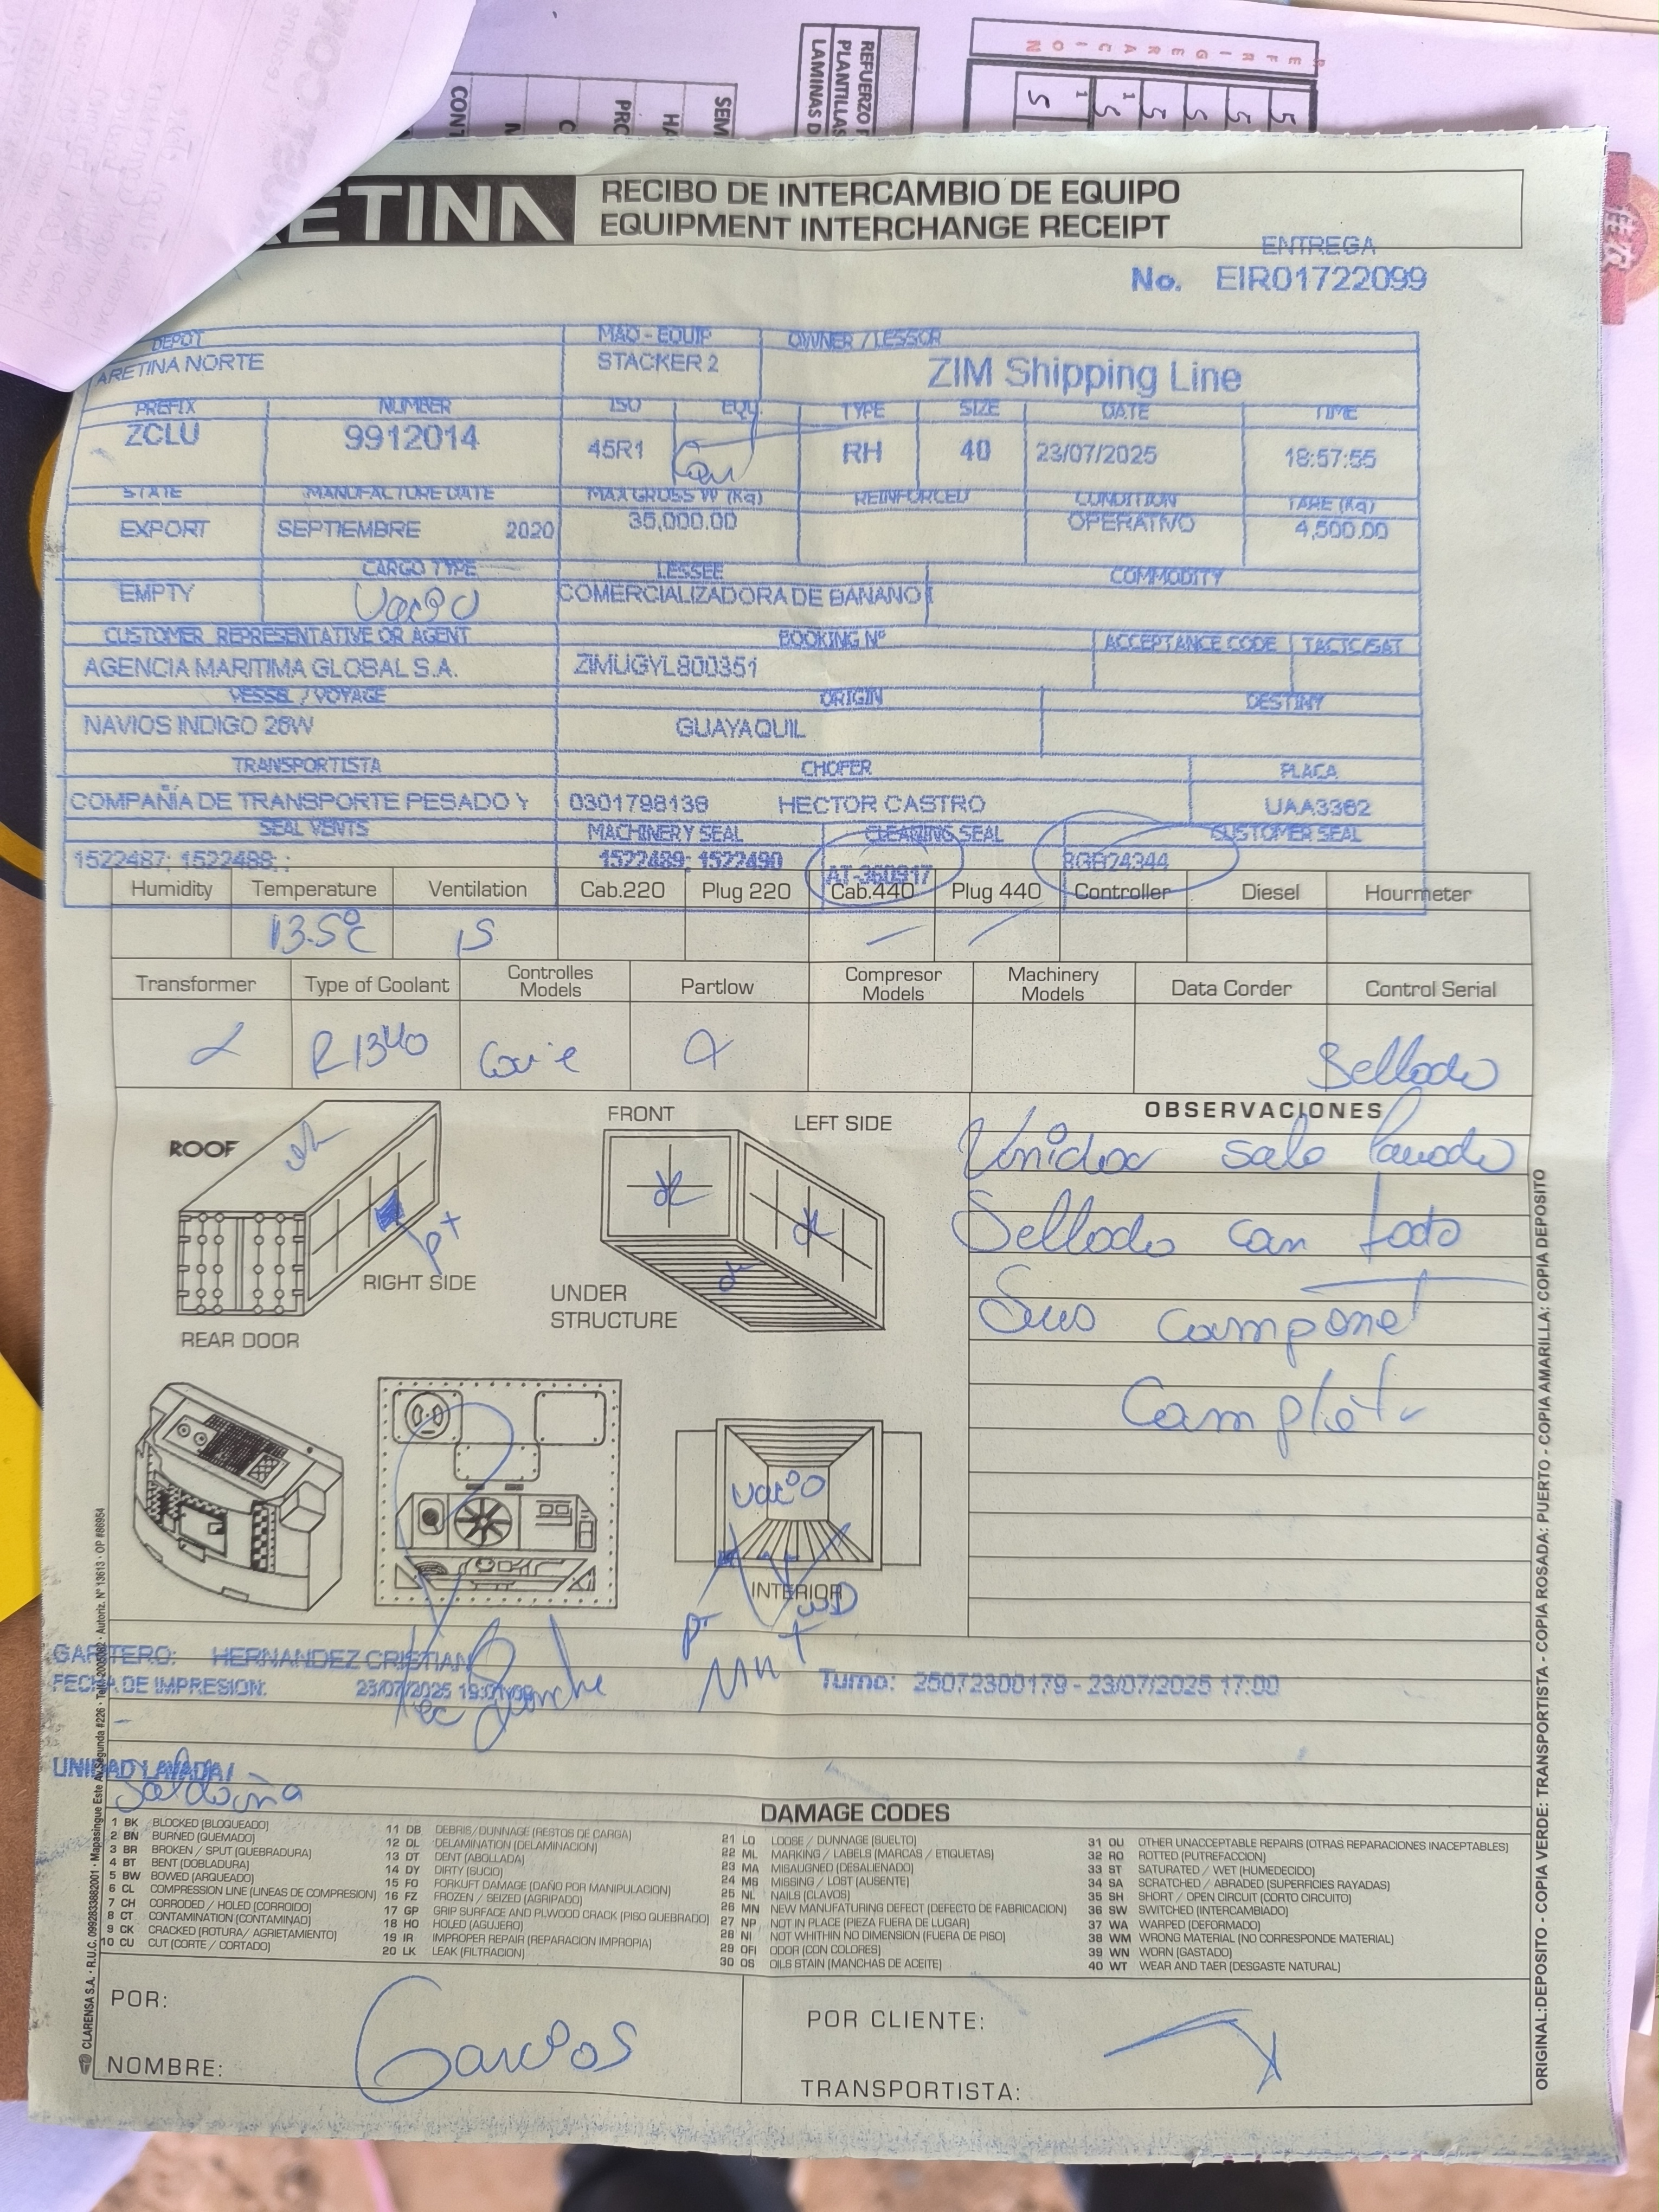 REFUERZO
PLANTILLAS
LAMINAS D
REFRIGERACION
CONT
PRO
HA
SEM
RETINA
RECIBO DE INTERCAMBIO DE EQUIPO
EQUIPMENT INTERCHANGE RECEIPT
ENTREGA
No. EIR01722099
DEPOT MAQ - EQUIP OWNER / LESSOR
ARETINA NORTE STACKER 2 ZIM Shipping Line
PREFIX NUMBER ISO EQU. TYPE SIZE DATE TIME
ZCLU 9912014 45R1 RH 40 23/07/2025 18:57:55
STATE MANUFACTURE DATE MAX GROSS W (Kg) REINFORCED CONDITION TARE (Kg)
EXPORT SEPTIEMBRE 2020 35,000.00 OPERATIVO 4,500.00
CARGO TYPE LESSEE COMMODITY
EMPTY Vacio COMERCIALIZADORA DE BANANO
CUSTOMER REPRESENTATIVE OR AGENT BOOKING Nº ACCEPTANCE CODE TACTC/SAT
AGENCIA MARITIMA GLOBAL S.A. ZIMUGYL800351
VESSEL / VOYAGE ORIGIN DESTINY
NAVIOS INDIGO 26W GUAYAQUIL
TRANSPORTISTA CHOFER PLACA
COMPAÑÍA DE TRANSPORTE PESADO Y 0301798138 HECTOR CASTRO UAA3362
SEAL VENTS MACHINERY SEAL CLEANING SEAL CUSTOMER SEAL
1522487; 1522488; ; 1522489; 1522490 AT-360917 BGB24344
Humidity Temperature Ventilation Cab.220 Plug 220 Cab.440 Plug 440 Controller Diesel Hourmeter
13.5ºc 15
Transformer Type of Coolant Controlles Models Partlow Compresor Models Machinery Models Data Corder Control Serial
Sellado
ROOF
FRONT
LEFT SIDE
RIGHT SIDE
REAR DOOR
UNDER
STRUCTURE
OBSERVACIONES
Unidad sale lavado
Sellado con todo
Sus componet
Complet
vacio
INTERIOR
GARITERO: HERNANDEZ CRISTIAN
FECHA DE IMPRESION: 23/07/2025 Turno: 25072300179 - 23/07/2025 17:00
UNIDAD LAVADA /
DAMAGE CODES
1 BK BLOCKED (BLOQUEADO)
2 BN BURNED (QUEMADO)
3 BR BROKEN / SPUT (QUEBRADURA)
4 BT BENT (DOBLADURA)
5 BW BOWED (ARQUEADO)
6 CL COMPRESSION LINE (LINEAS DE COMPRESION)
7 CH CORRODED / HOLED (CORROIDO)
8 CT CONTAMINATION (CONTAMINAD)
9 CK CRACKED (ROTURA/ AGRIETAMIENTO)
10 CU CUT (CORTE / CORTADO)
11 DB DEBRIS/DUNNAGE (RESTOS DE CARGA)
12 DL DELAMINATION (DELAMINACION)
13 DT DENT (ABOLLADA)
14 DY DIRTY (SUCIO)
15 FO FORKUFT DAMAGE (DAÑO POR MANIPULACION)
16 FZ FROZEN / SEIZED (AGRIPADO)
17 GP GRIP SURFACE AND PLWOOD CRACK (PISO QUEBRADO)
18 HO HOLED (AGUJERO)
19 IR IMPROPER REPAIR (REPARACION IMPROPIA)
20 LK LEAK (FILTRACION)
21 LO LOOSE / DUNNAGE (SUELTO)
22 ML MARKING / LABELS (MARCAS / ETIQUETAS)
23 MA MISAUGNED (DESALIENADO)
24 MS MISSING / LOST (AUSENTE)
25 NL NAILS (CLAVOS)
26 MN NEW MANUFATURING DEFECT (DEFECTO DE FABRICACION)
27 NP NOT IN PLACE (PIEZA FUERA DE LUGAR)
28 NI NOT WHITHIN NO DIMENSION (FUERA DE PISO)
29 OFI ODOR (CON COLORES)
30 OS OILS STAIN (MANCHAS DE ACEITE)
31 OU OTHER UNACCEPTABLE REPAIRS (OTRAS REPARACIONES INACEPTABLES)
32 RO ROTTED (PUTREFACCION)
33 ST SATURATED / WET (HUMEDECIDO)
34 SA SCRATCHED / ABRADED (SUPERFICIES RAYADAS)
35 SH SHORT / OPEN CIRCUIT (CORTO CIRCUITO)
36 SW SWITCHED (INTERCAMBIADO)
37 WA WARPED (DEFORMADO)
38 WM WRONG MATERIAL (NO CORRESPONDE MATERIAL)
39 WN WORN (GASTADO)
40 WT WEAR AND TAER (DESGASTE NATURAL)
POR:
NOMBRE:
POR CLIENTE:
TRANSPORTISTA:
ORIGINAL:DEPOSITO - COPIA VERDE: TRANSPORTISTA - COPIA ROSADA: PUERTO - COPIA AMARILLA: COPIA DEPOSITO
CLARENSA S.A. · R.U.C. 0992833882001 · Mapasingue Este Av. Segunda #226 · Autoriz. Nº 13613 · OP #86954